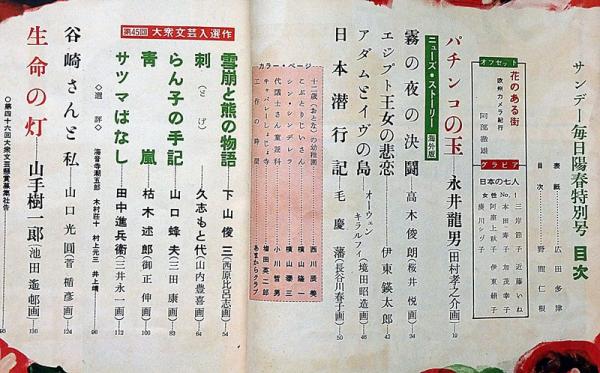 サンデー毎日陽春特別号 目次
表紙 広田多津
目次 野間仁根
オフセット
花のある街
欧州カメラ紀行
阿部徹雄
グラビア
日本の七人
女性 No.1
三岸節子 近藤いね
本田寿子 加茂幸子
阿富士秋子 伊東絹子
湊川シヅ子
パチンコの玉 永井龍男(田村孝之介画) 19
ニューズ・ストーリー 海外版
霧の夜の決闘 高木俊朗(桜井悦画) 34
エジプト王女の悲恋 伊東鍈太郎 42
アダムとイヴの島 オーウェン キラルフィ(境田昭造画) 46
日本潜行記 毛慶藩(長谷川春子画) 50
カラー・ページ
十二歳(おとな)の幼稚園 西川辰美
こぶとりじいさん 横山隆一
シン・シンデレラ 横山泰三
代議士さん童謡科 小川哲男
キャリーしょじょ寺 塩田英二郎
工作の時間 あまからクラブ
第45回 大衆文芸入選作
雪崩と熊の物語 下山俊三(西原比呂志画) 54
刺(とげ) 久志もと代(山内豊喜画) 64
らん子の手記 山口蜂夫(三田康画) 83
青嵐 枯木述郎(御正伸画) 100
サツマばなし 田中進兵衛(三井永一画) 112
◇選評◇ 海音寺潮五郎 木村荘十 村上元三 井上靖 96
谷崎さんと私 山口光圓(菅楯彦画) 124
生命の灯 山手樹一郎(池田遥邨画) 130
○第四十六回大衆文芸懸賞募集社告